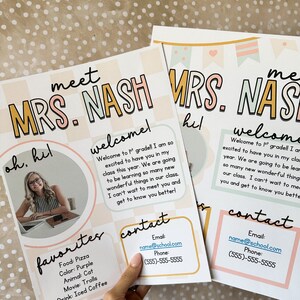 meet
MRS. NASH
oh, hi!
welcome!
Welcome to 1st grade! I am so
excited to have you in my
class this year. We are going
to be learning so many new
wonderful things in our class.
I can't wait to meet you and
get to know you better!
favorites
Food: Pizza
Color: Purple
Animal: Cat
Movie: Trolls
Drink: Iced Coffee
contact
Email:
name@school.com
Phone:
(555)-555-5555
meet
MRS. NASH
welcome
Welcome to 1st grade! I am
excited to have you in my
class this year. We are goin
to be learning so many new
wonderful things in our cla
I can't wait to meet you a
and get to know you bet
contact
Email:
name@school.com
Phone:
(555)-555-5555